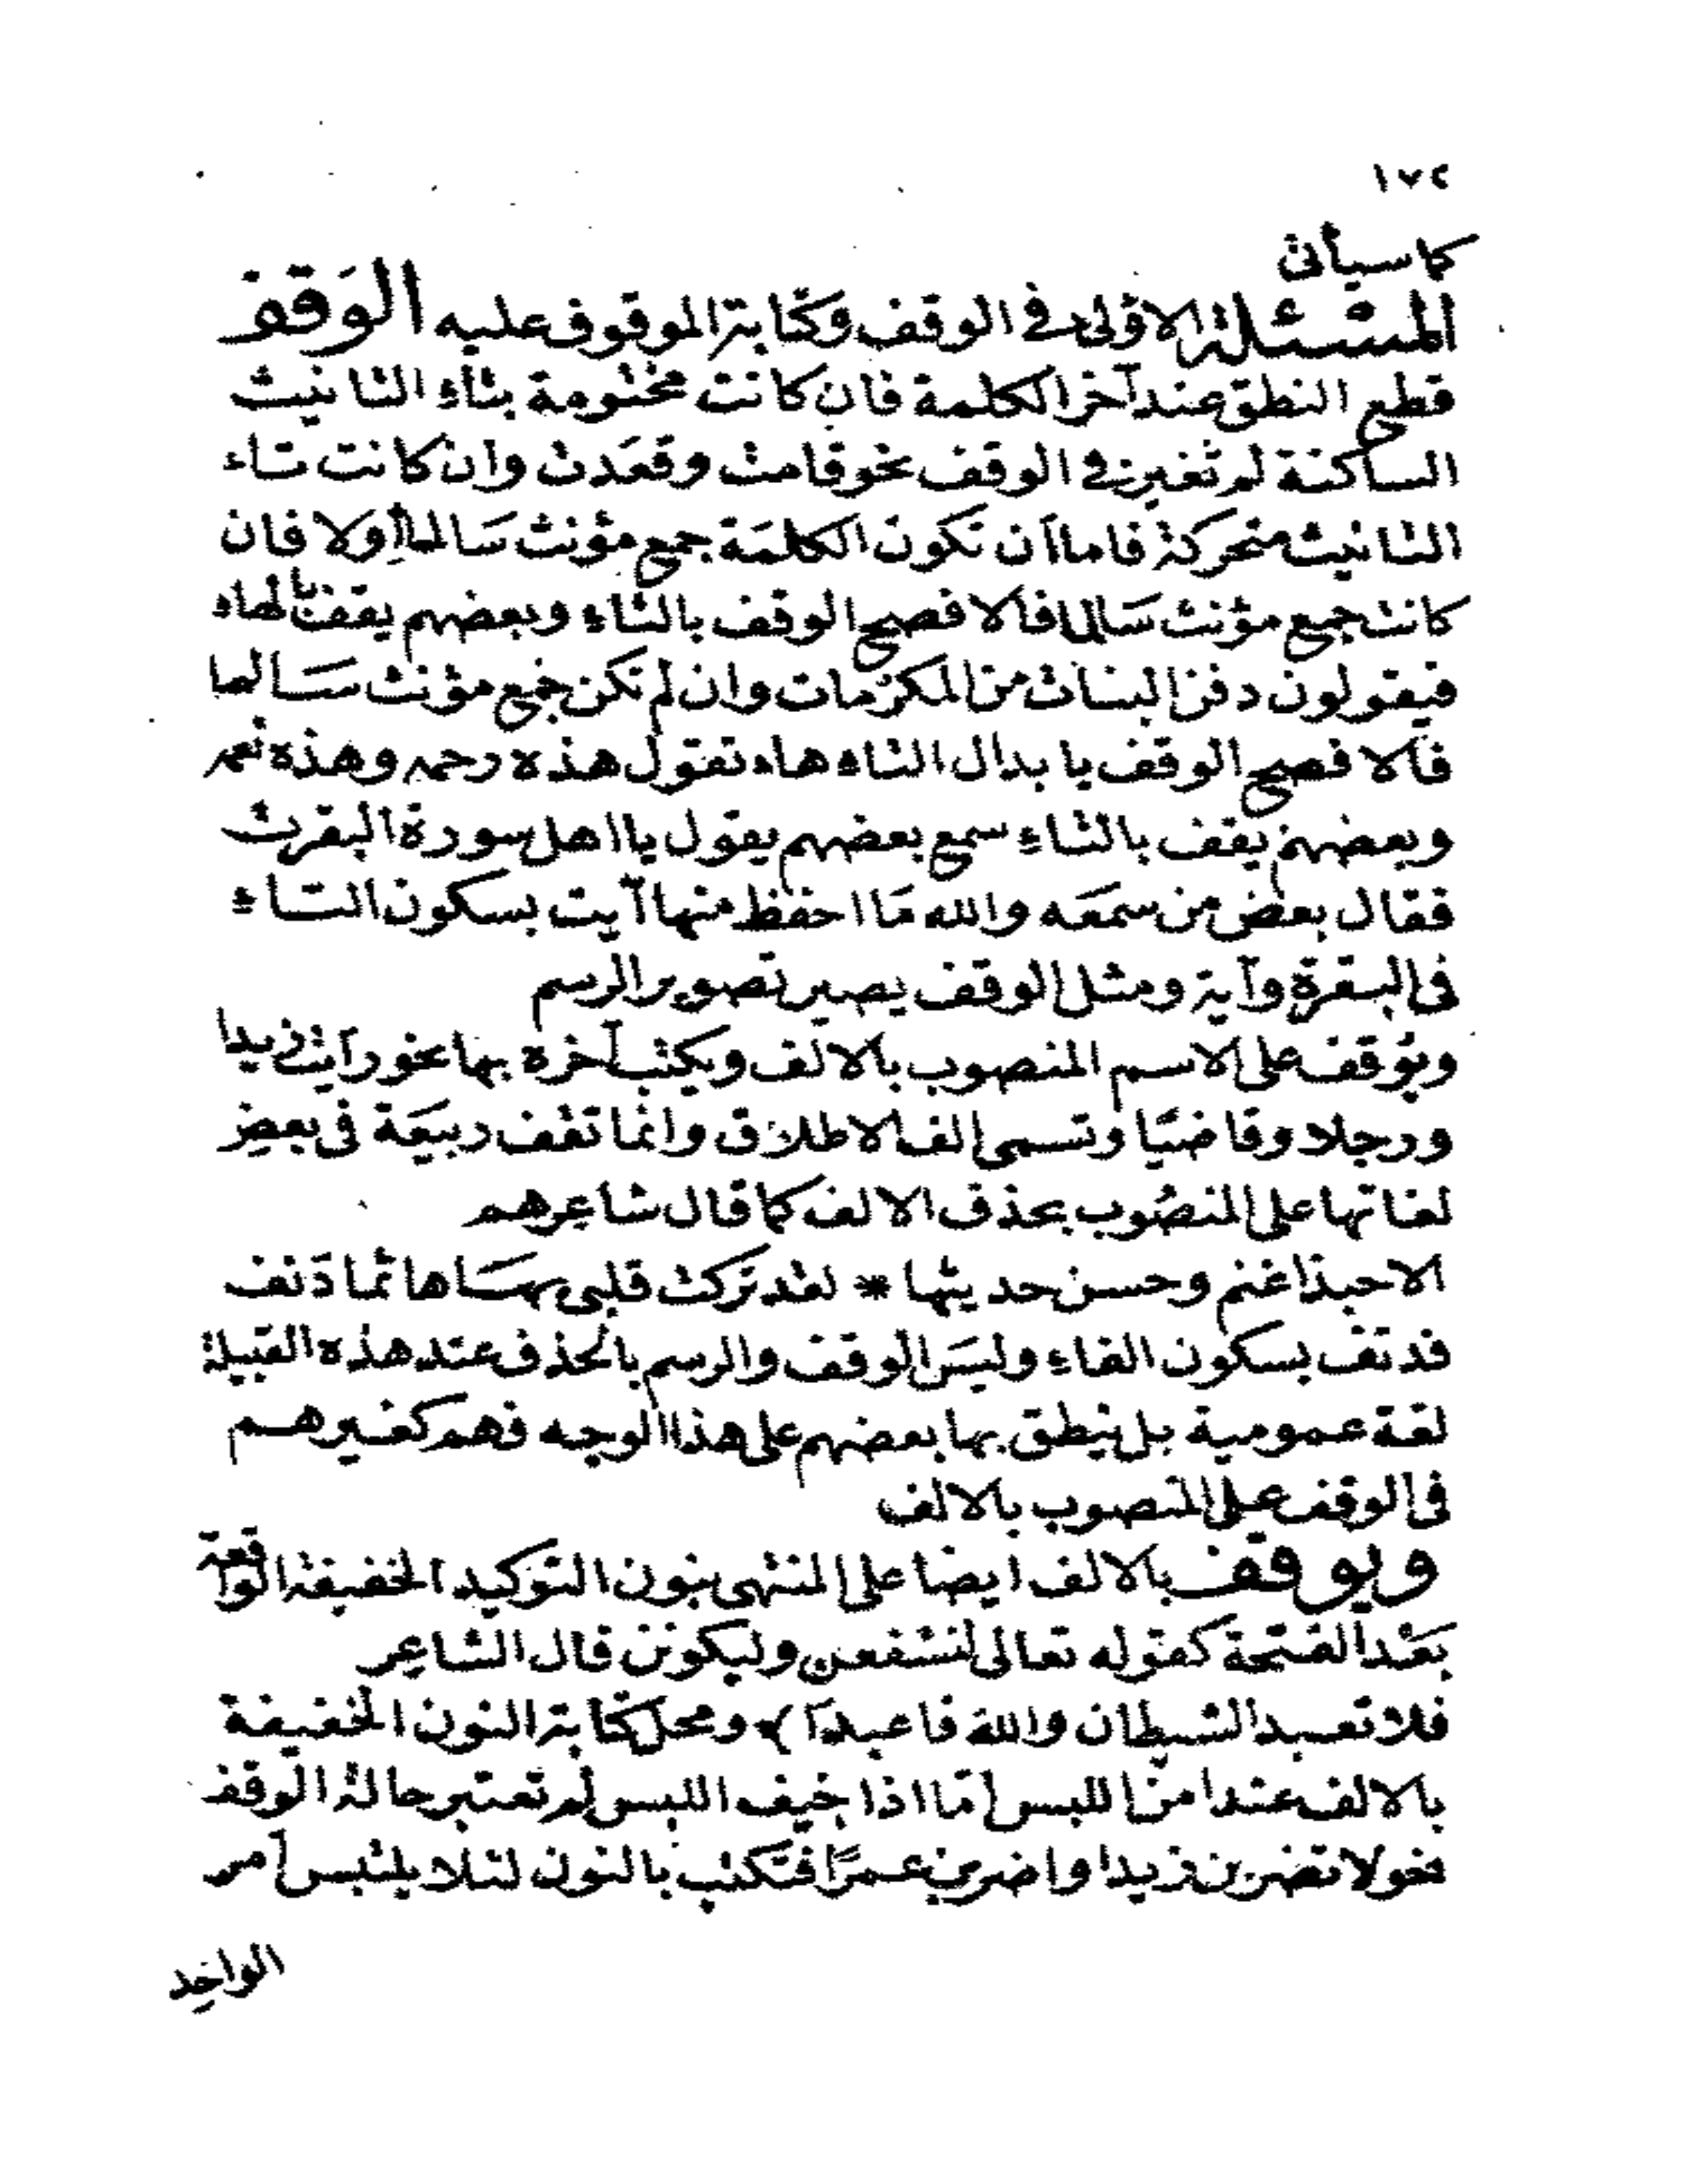 ١٧٢
كما سيأتى
المسئلة الاولى فى الوقف وكتابة الموقوف عليه الوَقف
قطع النطق عند آخر الكلمة فان كانت مختومة بتاء التانيث
الساكنة لم تغير فى الوقف نحو قامت وقعَدت وان كانت تاء
التانيث متحركة فاما أن تكون الكلمَة جمع مؤنث سَالما أولا فان
كانت جمع مؤنث سَالما فالافصح الوقف بالتاءِ وبعضهم يقف بالهاء
فيقولون دفن البناتْ من المكرمات وان لم تكن جمع مؤنث سَالما
فالافصح الوقف بابدال التاء هاء تقول هذه رحمه وهذه نعمه
وبعضهم يقف بالتاءِ سمع بعضهم يقول يا اهل سورة البقرت
فقال بعض من سمعَه والله مَا احفظ منها آيت بسكون التاء
فى البقرة وآية ومثل الوقف يصير تصوير الرسم
ويوقف على الاسم المنصوب بالالف ويكتب آخره بها نحو رأيت زيدا
ورجلا وقاضيًا وتسمى الف الاطلاق وانما تقف ربيعَة فى بعض
لغاتها على المنصُوب بحذف الالف كما قال شاعِرهم
الاحبذا غنم وحسن حديثها * لقد تركت قلبى بهَا هائما دَنف
فدنف بسكون الفاءِ وليسَ الوقف والرسم بالحذف عند هذه القبيلة
لغة عمومية بل ينطق بها بعضهم على هذا الوجه فهم كغيرهم
فى الوقف على المنصوب بالالف
ويوقف بالالف ايضا على المنتهى بنون التوكيد الخفيفة الواقعة
بعْد الفتحة كقوله تعالى لنسفعن وليكونن قال الشاعِر
فلا تعبد الشيطان والله فاعبدَا ﴾ ومحل كتابة النون الخفيفة
بالالف عند امن اللبس أمّا اذا خيف اللبس لم تعتبر حالة الوقف
نحو لا تضربن زيدا واضربن عمرًا فتكتب بالنون لئلا يلتبس أمر
الواحِد